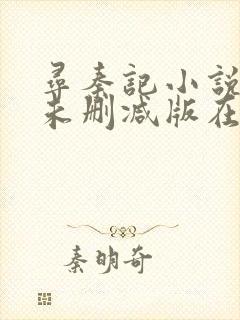 尋秦記小說
未刪減版在
秦明奇